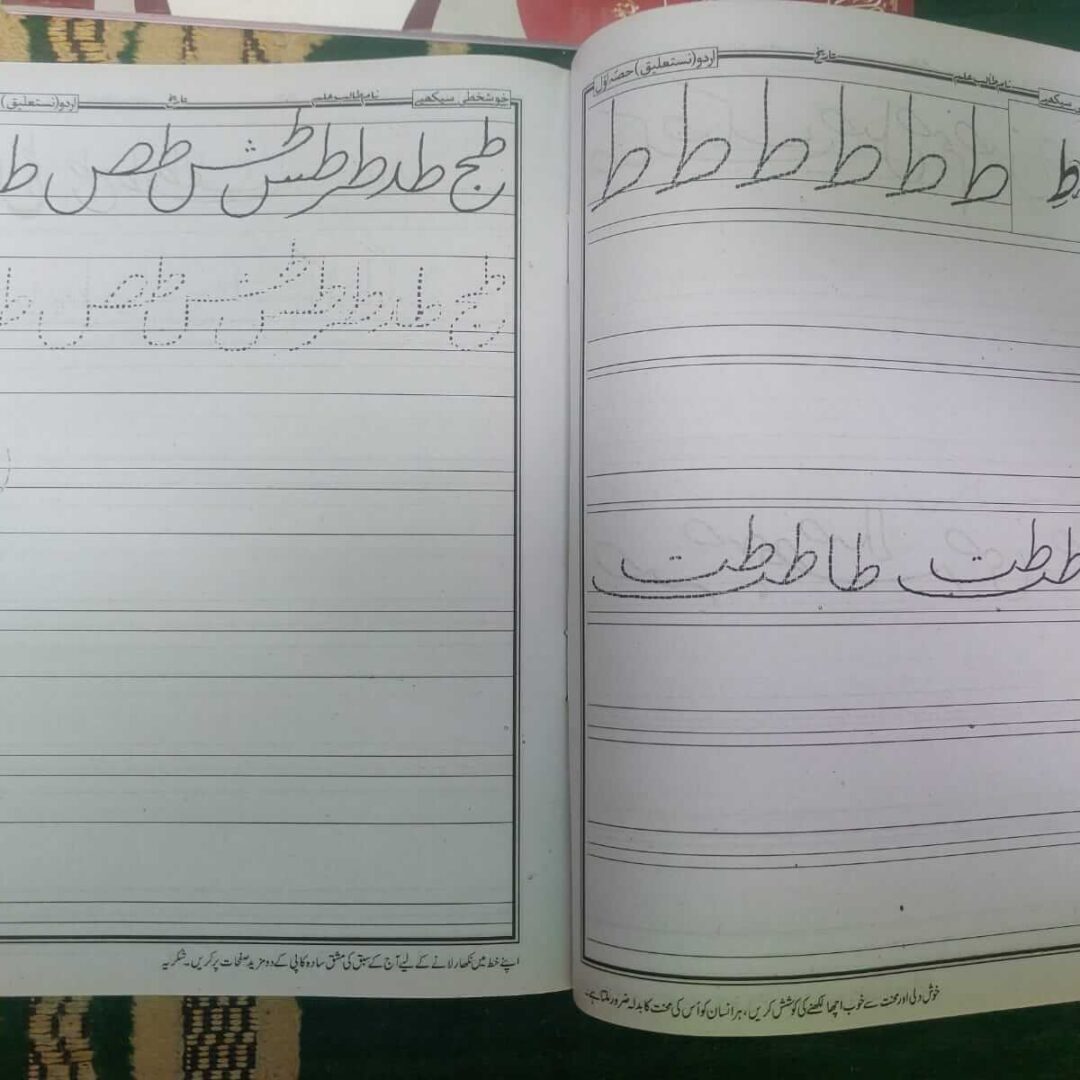 اردو(نستعلیق) حصّہ اوّل
تاریخ
نام طالب علم
ط ط ط ط ط ط
طا
خوش دلی اور محنت سے خوب اچھا لکھنے کی کوشش کریں، ہر انسان کو اُس کی محنت کا بدلہ ضرور ملتا ہے۔
خوشخطی سیکھیے
نام طالب علم
تاریخ
اردو(نستعلیق)
طج طد طر طس طش طص ط
طج طد طر طس طش طص ط
اپنے خط میں نکھار لانے کے لیے آج کے سبق کی مشق سادہ کاپی کے دو مزید صفحات پر کریں۔ شکریہ